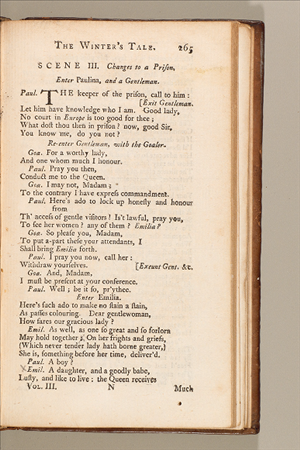 The Winter's Tale. 265
SCENE III. Changes to a Prison.
Enter Paulina, and a Gentleman.
Paul. THE keeper of the prison, call to him:
[Exit Gentleman.
Let him have knowledge who I am. Good lady,
No court in Europe is too good for thee;
What dost thou then in prison? now, good Sir,
You know me, do you not?
Re-enter Gentleman, with the Goaler.
Goa. For a worthy lady,
And one whom much I honour.
Paul. Pray you then,
Conduct me to the Queen.
Goa. I may not, Madam;
To the contrary I have express commandment.
Paul. Here's ado to lock up honesty and honour
from
Th' access of gentle visitors! Is't lawful, pray you,
To see her women? any of them? Emilia?
Goa. So please you, Madam,
To put a-part these your attendants, I
Shall bring Emilia forth.
Paul. I pray you now, call her:
Withdraw yourselves. [Exeunt Gent. &c.
Goa. And, Madam,
I must be present at your conference.
Paul. Well; be it so, pr'ythee.
Enter Emilia.
Here's such ado to make no stain a stain,
As passes colouring. Dear gentlewoman,
How fares our gracious lady?
Emil. As well, as one so great and so forlorn
May hold together; On her frights and griefs,
(Which never tender lady hath borne greater,)
She is, something before her time, deliver'd.
Paul. A boy?
Emil. A daughter, and a goodly babe,
Lusty, and like to live: the Queen receives
Vol. III. N Much